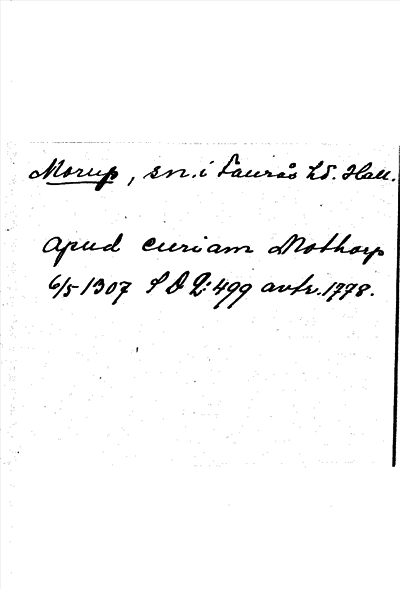 Morup, sn. i Faurås hd. Hall.
apud curiam Mothorp
6/5 1307 S D 2: 499 avskr. 1778.